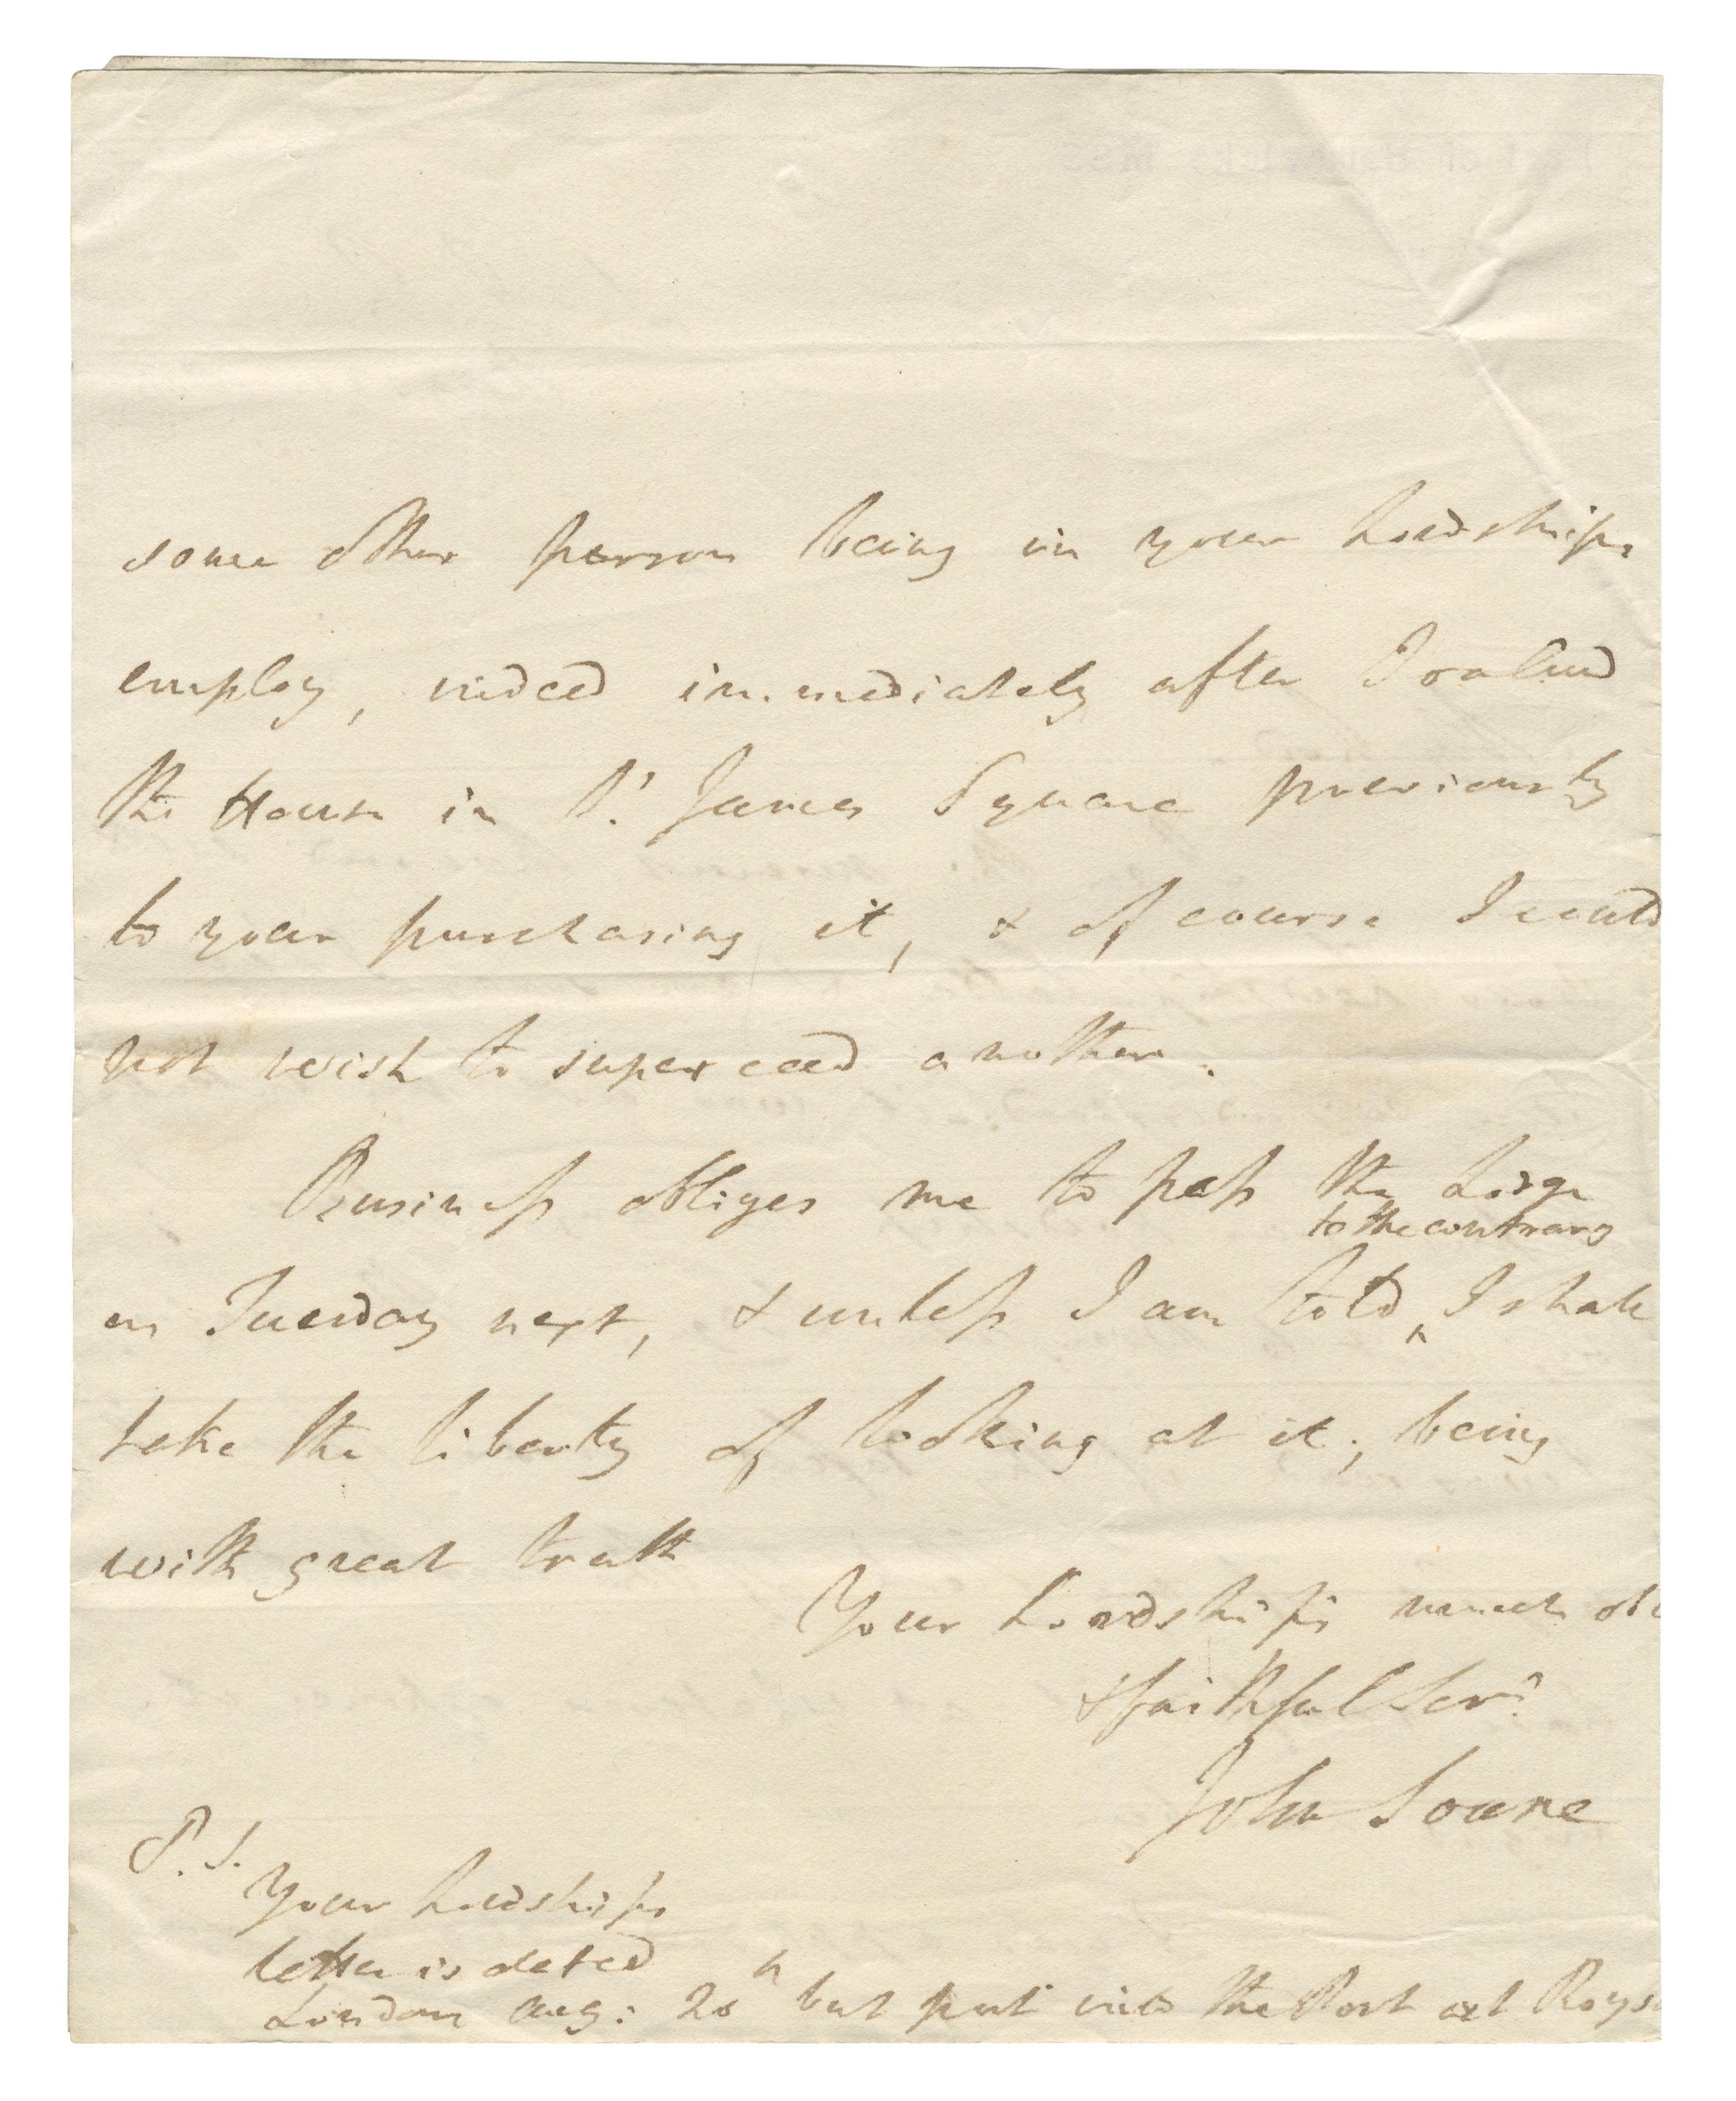 some other person being in your Lordships
employ, indeed immediately after I valued
the House in St. James Square previously
to your purchasing it, & of course I could
not wish to superceed another.
Business obliges me to pass the Lodge
to the contrary
on Tuesday next, & unless I am told ^ I shall
take the liberty of looking at it; being
with great truth
Your Lordships much ob
& faithful Servt
John Soane
P.S.
Your Lordships
letter is dated
London Aug: 20th but put into the Post at Roys